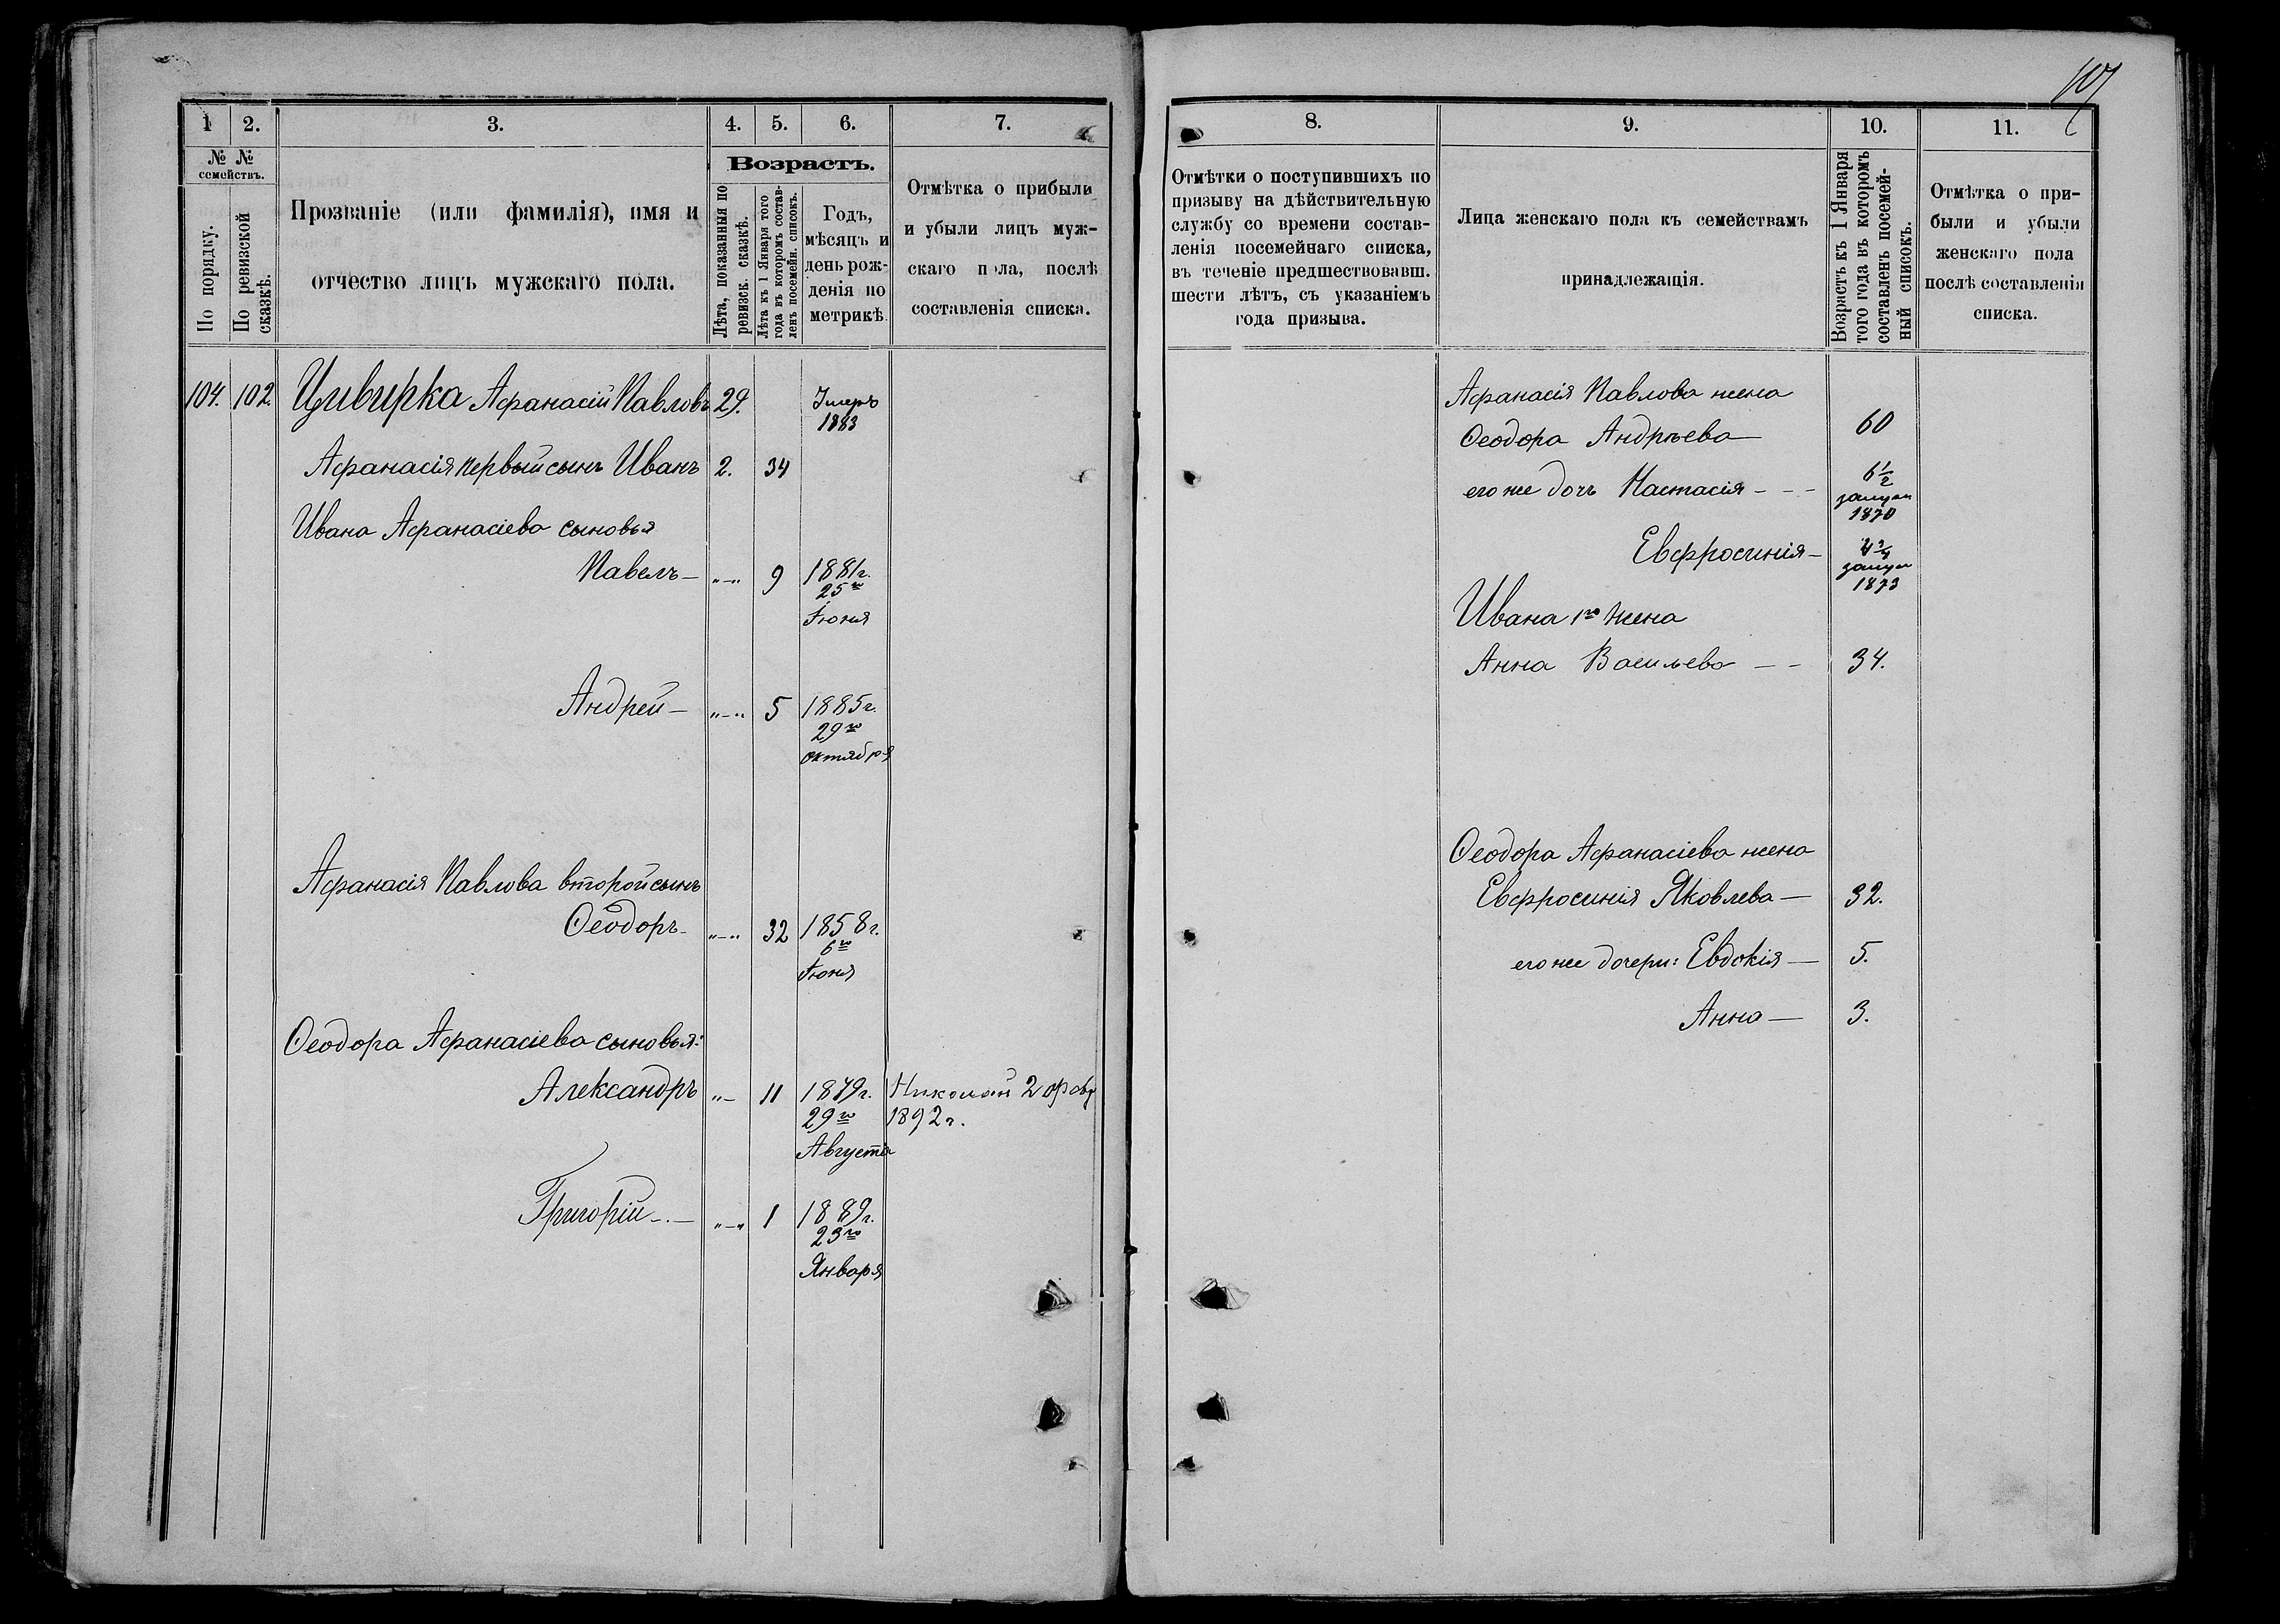 107
1
2.
3.
4.
5.
6.
7.
№ №
семействъ.
По порядку.
По ревизской
сказкѣ.
Прозваніе (или фамилія), имя и
отчество лицъ мужскаго пола.
Возрастъ.
Лѣта, показанныя по
ревизск. сказкѣ.
Лѣта къ 1 Января того
года въ которомъ состав-
ленъ посемейн. списокъ.
Годъ,
мѣсяцъ и
день рож-
денія по
метрикѣ
Отмѣтка о прибыли
и убыли лицъ муж-
скаго пола, послѣ
составленія списка.
104. 102. Цивирка Афанасій Павловъ 29.
Умеръ
1883
Афанасія первый сынъ Иванъ 2. 34
Ивана Афанасіева сыновья
Павелъ — „—„ 9 1881г.
25го
Іюня
Андрей — „—„ 5 1885г.
29го
октября
Афанасія Павлова второй сынъ
Ѳеодоръ — „—„ 32 1858г.
6го
Іюня
Ѳеодора Афанасіева сыновья:
Александръ „— 11 1879г. Николай 2
29го 1892г.
Августа
Григорій — „—„ 1 1889г.
23го
Января
8.
9.
10.
11.
Отмѣтки о поступившихъ по
призыву на дѣйствительную
службу со времени состав-
ленія посемейнаго списка,
въ теченіе предшествовавш.
шести лѣтъ, съ указаніемъ
года призыва.
Лица женскаго пола къ семействамъ
принадлежащія.
Возрастъ къ 1 Января
того года въ которомъ
составленъ посемей-
ный списокъ.
Отмѣтка о при-
были и убыли
женскаго пола
послѣ составленія
списка.
Афанасія Павлова жена
Ѳеодора Андрѣева — 60
его же дочь Настасія - - - 6½
замуж
1870
Евфросинія —
замуж
1873
Ивана 1го жена
Анна Васильева — — 34.
Ѳеодора Афанасіева жена
Евфросинія Яковлева — 32.
его же дочери: Евдокія — 5.
Анна — 3.